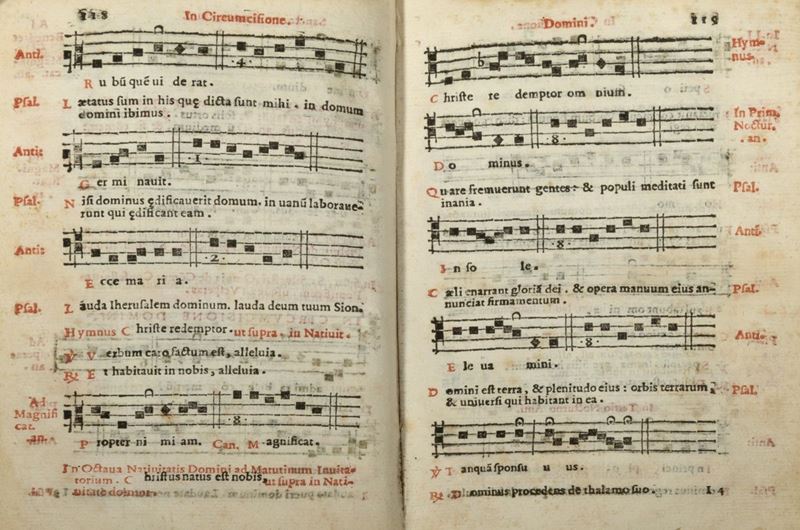 118 In Circumcisione.
Anti.
R u bū quē ui de rat.
Psal. L ætatus sum in his quę dicta sunt mihi . in domum
domini ibimus .
Anti:
G er mi nauit.
Psal. N isi dominus ędificauerit domum. in uanū laboraue-
runt qui ędificant eam .
Anti:
E cce ma ri a.
Psal. L auda Iherusalem dominum. lauda deum tuum Sion.
Hymnus C hriste redemptor . ut supra . in Natiuit.
℣ V erbum caro factum est, alleluia .
℟ E t habitauit in nobis, alleluia .
Ad
Magnifi
cat.
an.
P ropter ni mi am. Can. M agnificat.
In Octaua Natiuitatis Domini ad Matutinum Inuita-
torium . C hristus natus est nobis, ut supra in Nati-
uitate domini.
Domini. 119
Hym-
nus.
C hriste re demptor om nium.
In Prim.
Noctur.
an.
D o minus.
Q uare fremuerunt gentes: & populi meditati sunt Psal.
inania .
Anti.
I n so le.
C æli enarrant gloriā dei . & opera manuum eius an- Psal.
nunciat firmamentum .
Anti.
E le ua mini.
D omini est terra, & plenitudo eius : orbis terrarum, Psal.
& uniuersi qui habitant in ea .
℣ T anquā sponsu u us.
℟ D ominus procedens de thalamo suo . I 4